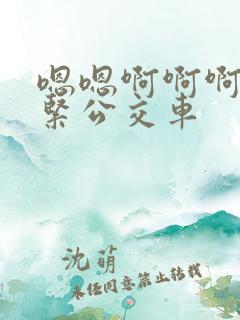 嗯嗯啊啊啊
紧公交车
沈萌
未经同意禁止转载